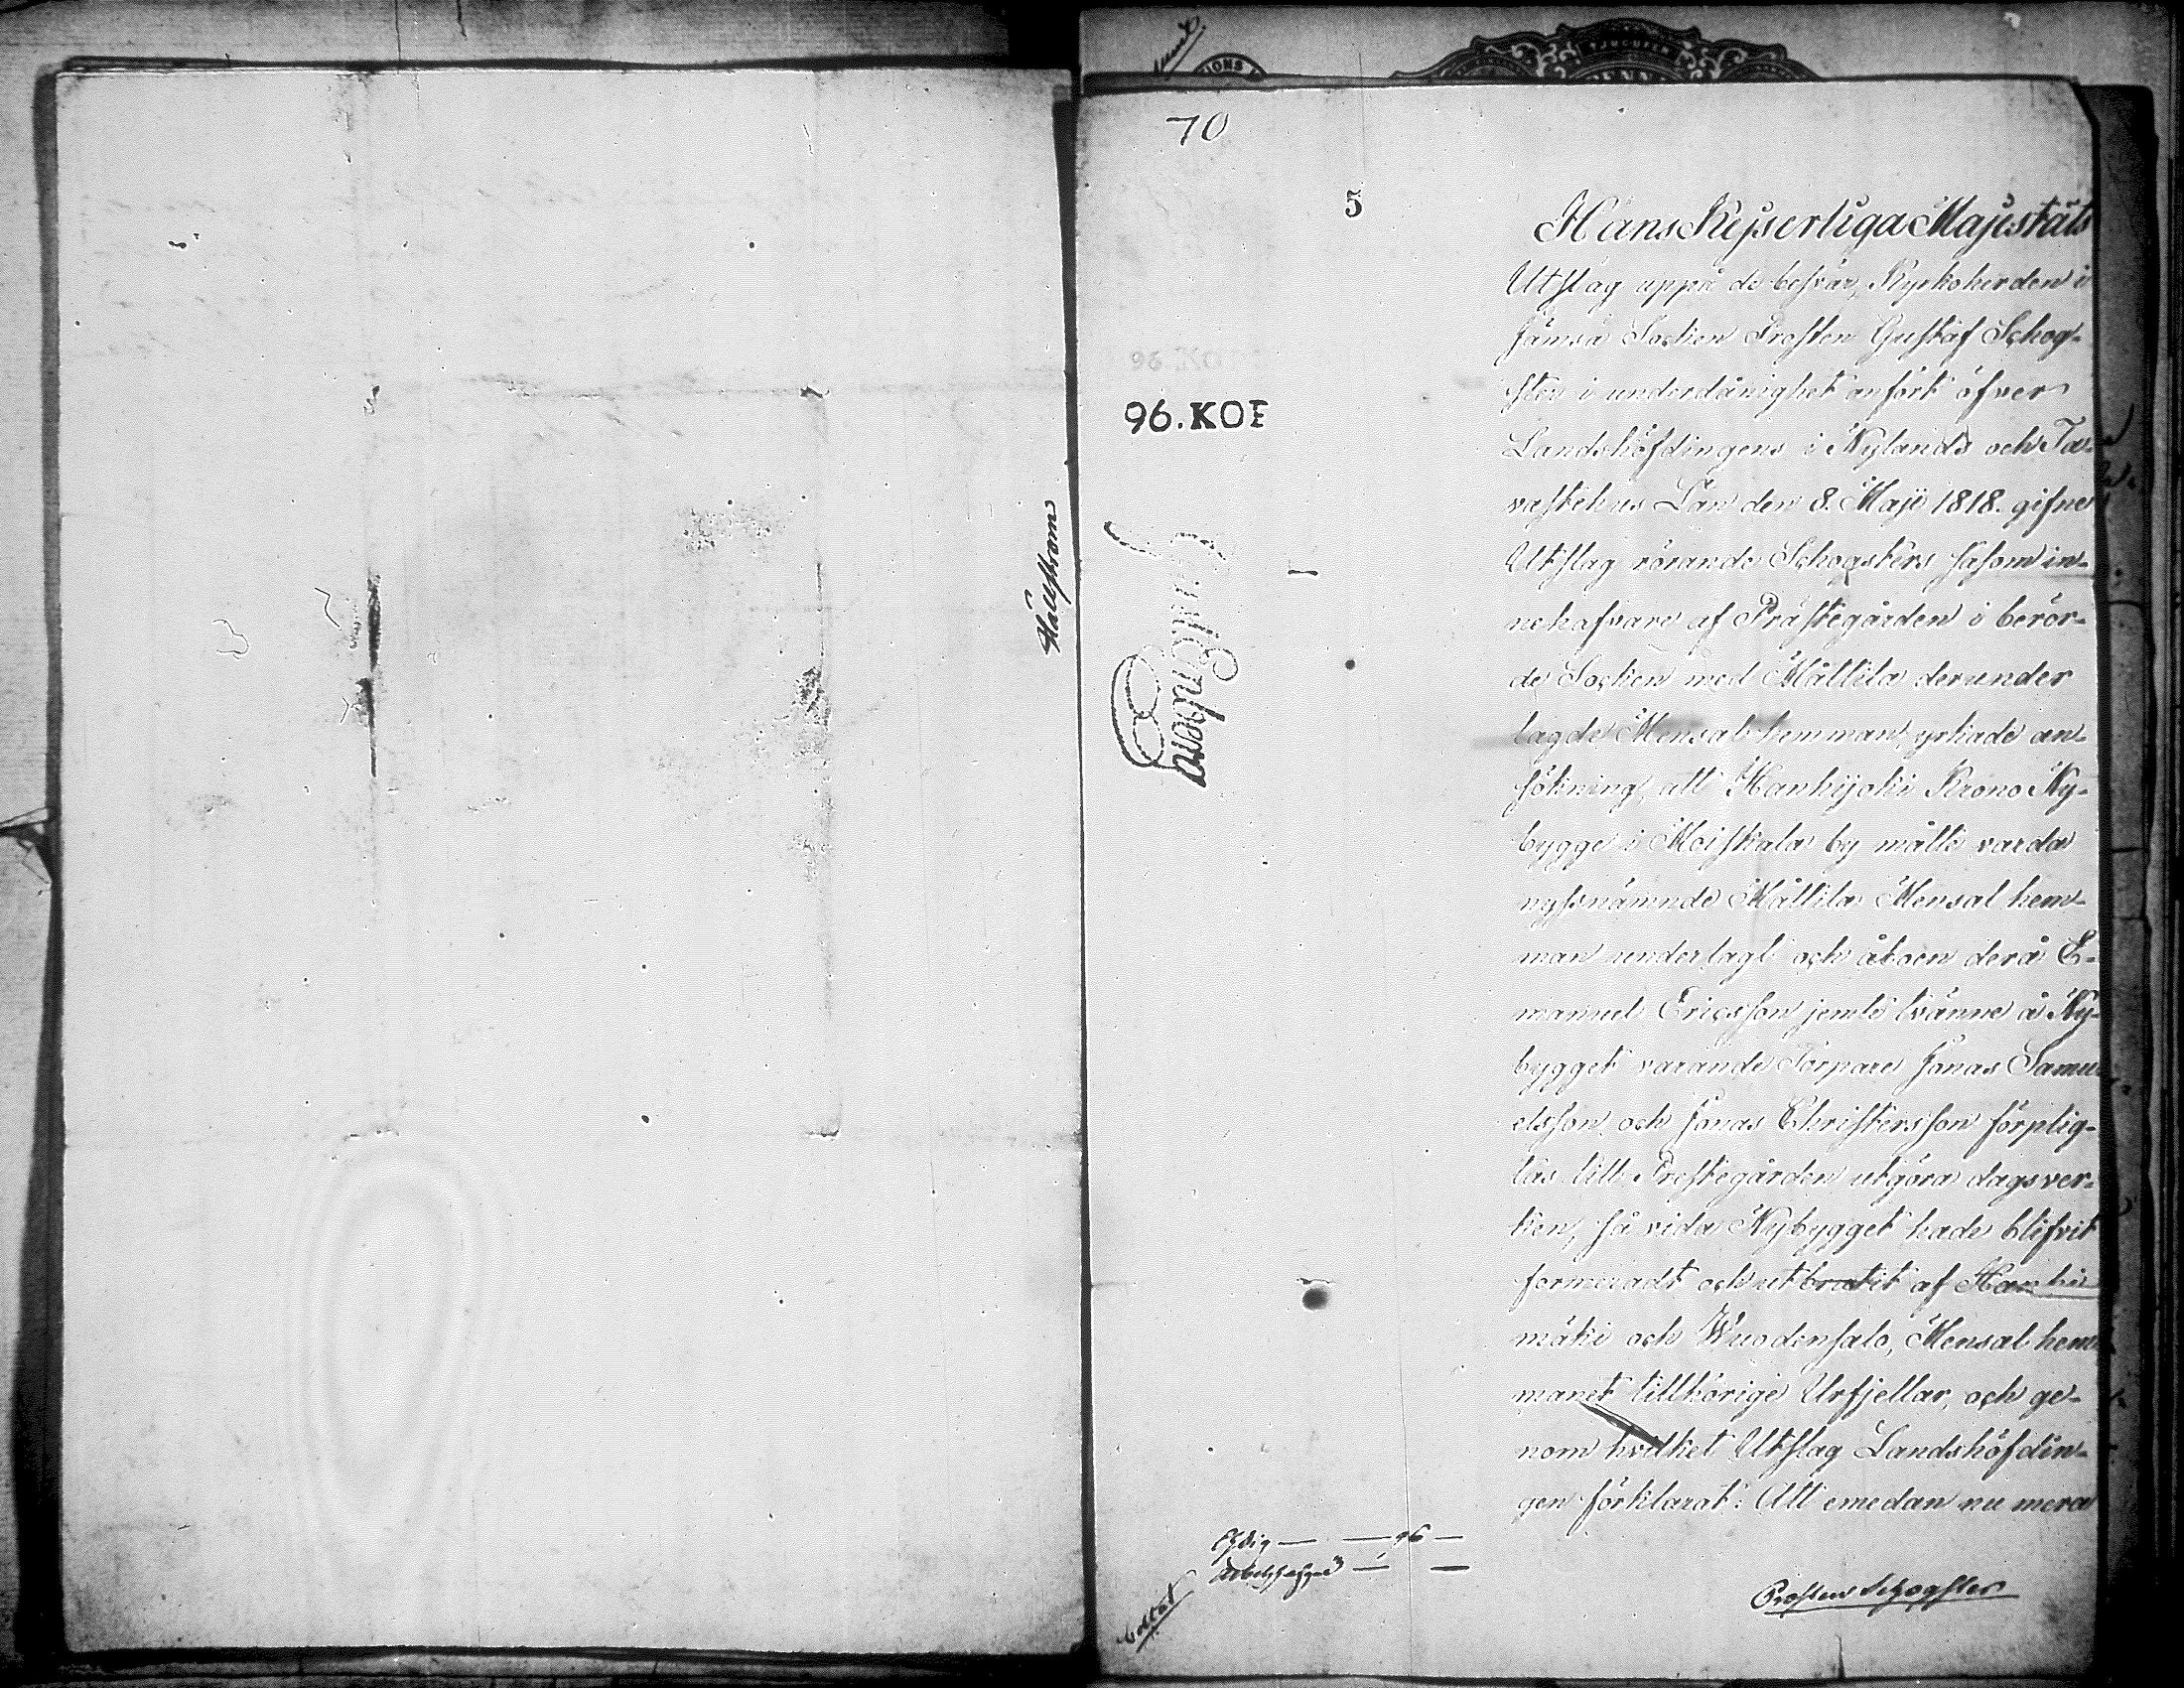 70
5
Hans Kejserliga Majestäts
Utslag uppå de besvär, Kyrkoherden i
Jämsä Socken Prosten Gustaf Schog-
ster i underdånighet anfört öfver
Landshöfdingens i Nylands och Ta-
vastehus Län den 8. Maji 1818. gifne
Utslag rörande Schogsters såsom in-
nehafvare af Prästegården i berör-
de Socken med Mällilä derunder
lagde Mensal hemman, yrkade an-
sökning, att Hankijoki Krono Ny-
bygge i Moiskala by måtte varda
nyssnämnde Mällilä Mensal hem-
man underlagt och åboen derå E-
manuel Ericsson jemte tvänne å Ny-
bygget varande Torpare Jonas Samu-
elsson och Jonas Christersson förplig-
tas till Prestegården utgöra dagsver-
ken, så vida Nybygget hade blifvit
formeradt och utbrutit af Hanhi-
mäki och Wuodensalo, Mensal hem-
manet tillhörige Urfjellar, och ge-
nom hvilket Utslag Landshöfdin-
gen förklarat: Att emedan nu mera
96.KOE
Hällström
96
Prosten Schogster